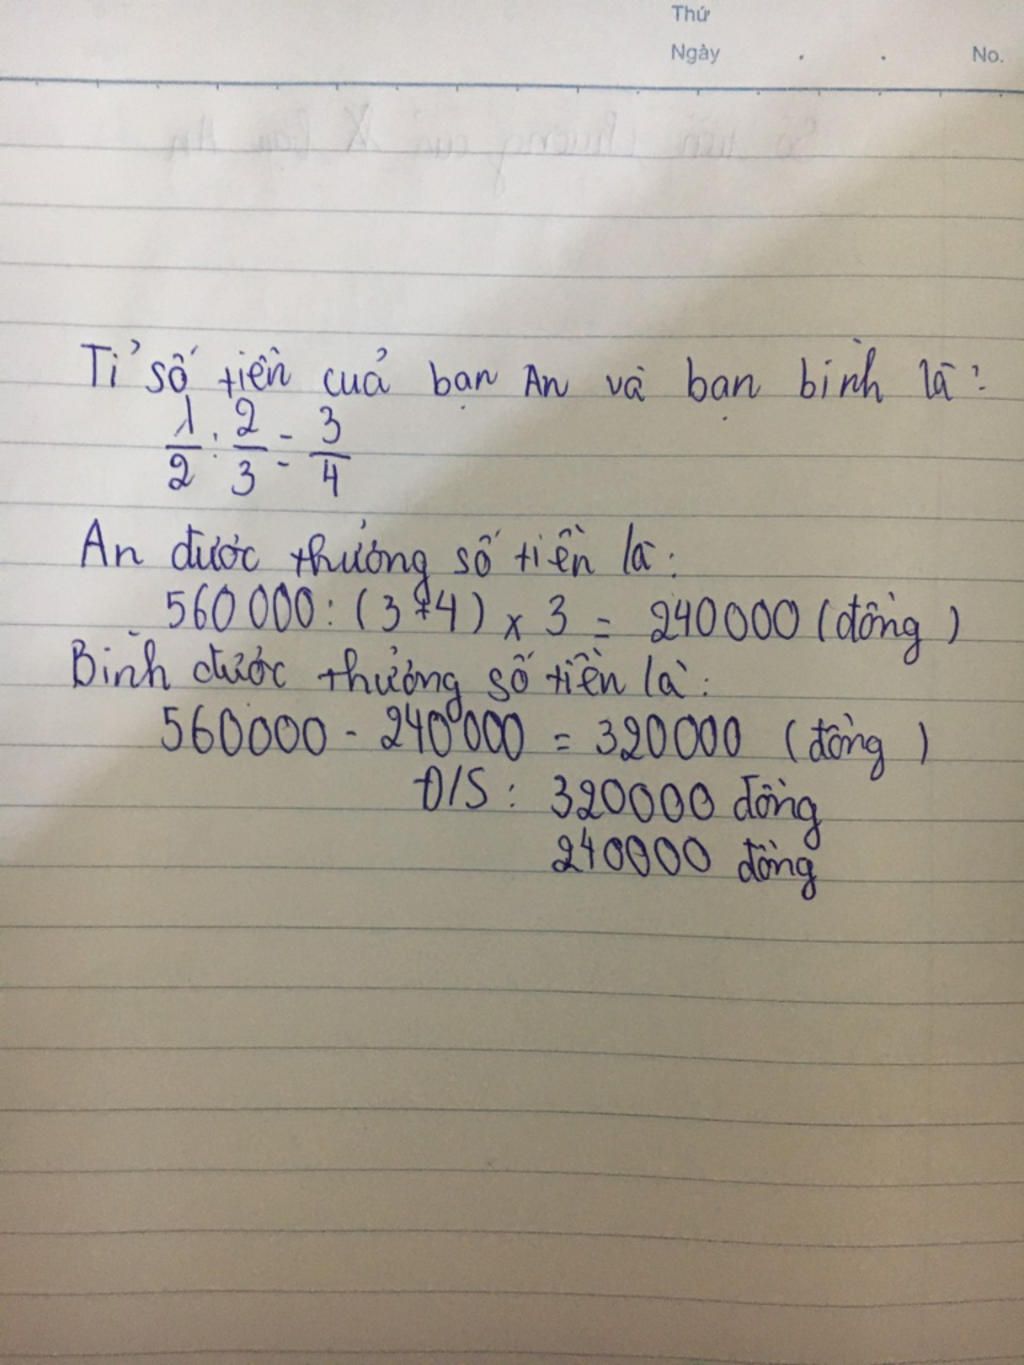 Thứ
Ngày . . No.
Tỉ số tiền cuả bạn An và bạn bình là:
1/2 : 2/3 = 3/4
An được thưởng số tiền là:
560 000 : (3+4) x 3 = 240000 (đồng)
Bình được thưởng số tiền là:
560000 - 240000 = 320000 (đồng)
Đ/S : 320000 đồng
240000 đồng